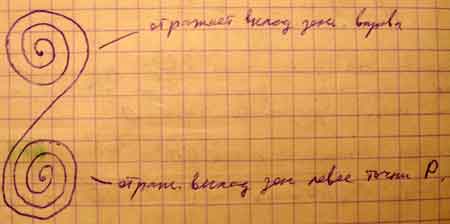 отражает вклад зон. вправо
отраж. вклад зон левее точки P.